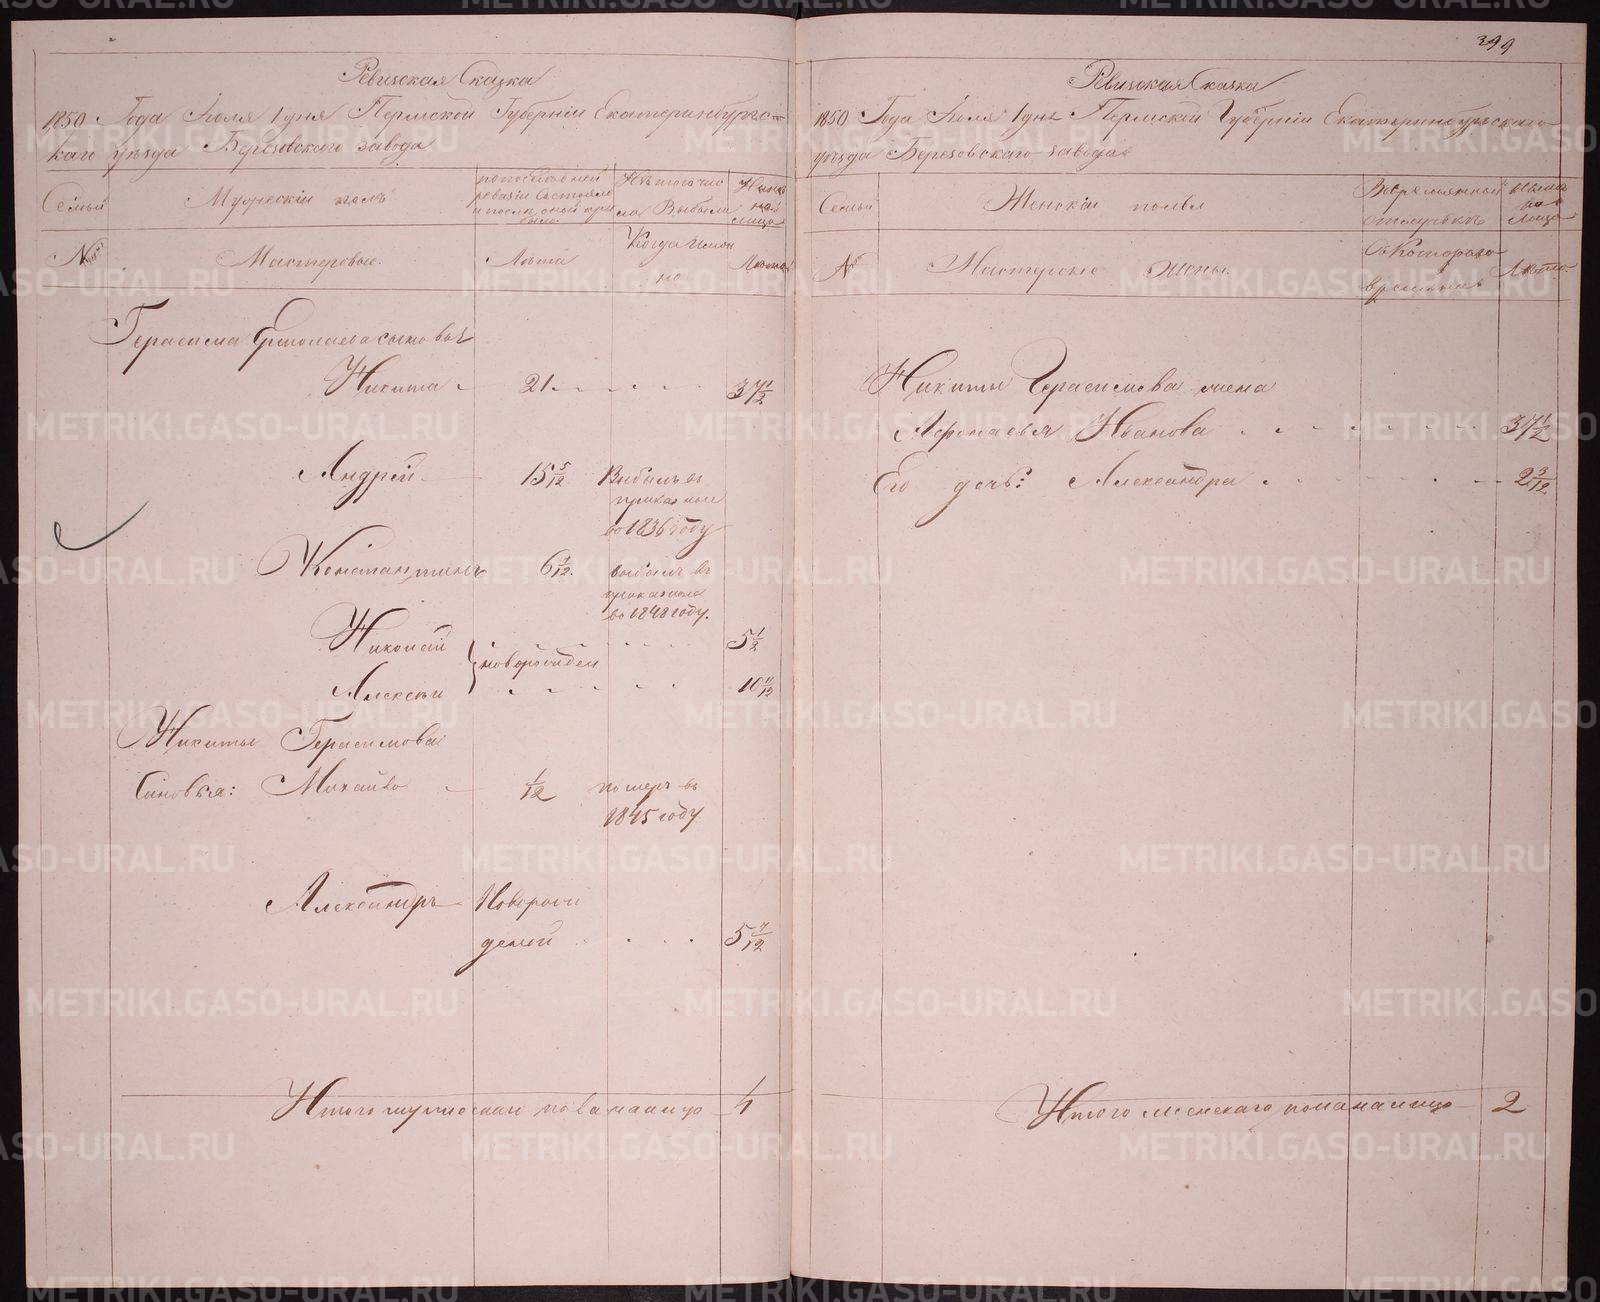 Ревизская Сказка
1850 Года Июля 1 дня Пермской Губернiи Екатеринбургс-
каго уѣзда Березовскаго завода
Семьи
Мужескiй полъ
по последней
ревизiи состояло
и после оной при
было
Изъ того чис
ла Выбыло
Ныне
на
лицо
№
Мастеровые.
Лѣта
Когда имян
но
Лѣта
Герасима Ермолаева сыновья
Никита 21 37 1/2
Андрей 15 5/12 Выбылъ въ
приказные
во 1836 году
Константинъ 6 1/12 выбылъ въ
приказные
во 1848 году.
Николай 5 1/2
новорожден
Алексѣй 10 11/12
Никиты Герасимова
Сыновья: Михайло 1/12 померъ въ
1845 году
Александръ Новорож
деной 5 7/12
Итого мужескаго пола налицо 4
399
Ревизская Сказка
1850 Года Июля 1 дня Пермской Губернiи Екатеринбургскаго
уѣзда Березовскаго завода
Семьи
Женскiй полъ
Во временной
отлучкѣ
на
лицо
№
Мастерские Жены.
Съ Котораго
времени
Лѣта
Никиты Герасимова жена
Афонасья Иванова 37 1/2
Его дочь: Александра 2 3/12
Итого женскаго пола налицо 2
METRIKI.GASO-URAL.RU